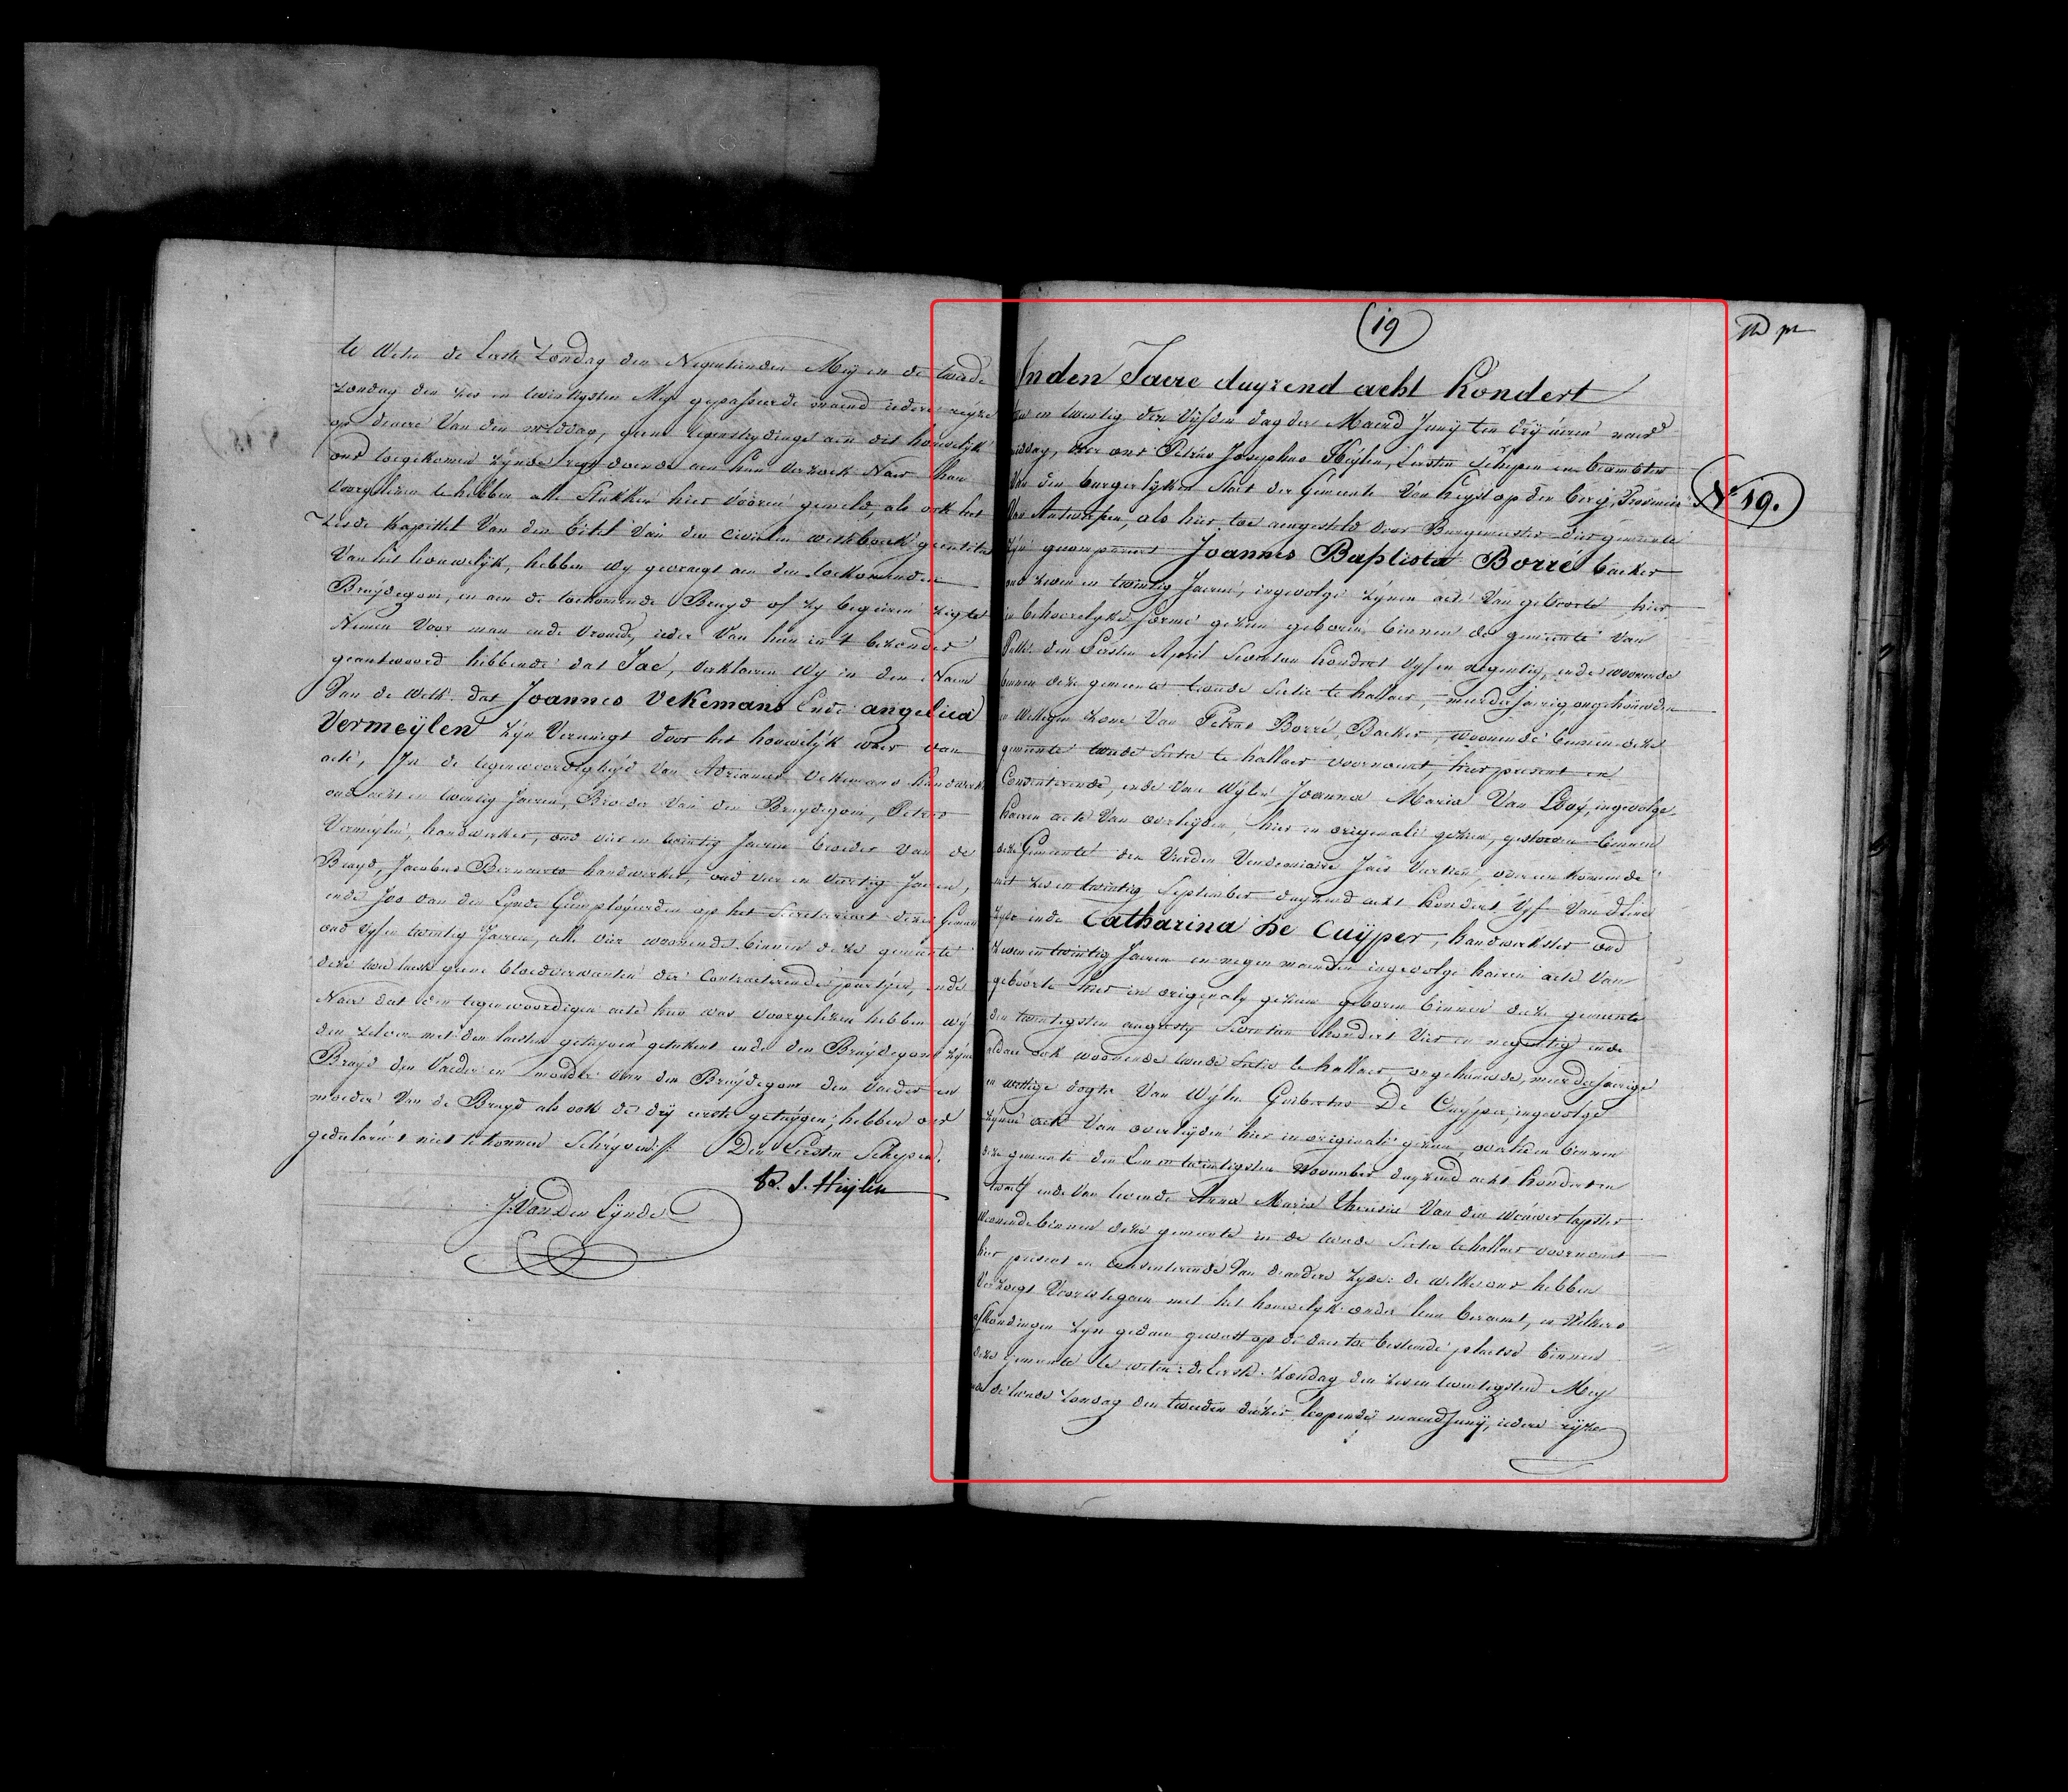 te Weten de Eerste Zondag den Negentienden Meÿ en de twede
Zondag den zes en twintigsten Meÿ gepasseerde maend iedere reyze
op deure Van den middag, geene tegenstrydinge aen dit houwelyk
ons toegekomen zynde regt doende aen hun verzoek Naer hun
Voorgelezen te hebben alle Stukken hier Vooren gemeld, als ook het
Zesde Kapittel Van den titel Van den Civielen wetboek geentitu
Van het houwelÿk, hebben wy gevraegt aen den toekomenden
Bruÿdegom, en aen de toekomende Bruyd of zy begeiren zig te
Nemen Voor man ende Vrouwe, ieder Van hun in 't bezonder
geantwoord hebbende dat Jae, Verklaeren Wy in den Naem
Van de Wet dat Joannes Vekemans Ende angelica
Vermeÿlen Zyn Vereenigt door het houwelÿk waer van
acte, In de tegenwoordigheÿd Van Adrianus Vekemans handwerk
oud acht en twintig Jaeren, Broeder Van den Bruydegom, Petrus
Vermeÿlen, handwerker, oud vier en twintig Jaeren broeder Van de
Bruyd, Jacobus Bernaerts handwerker, oud vier en Veertig Jaeren,
ende Jos Van den Eynde Geemployeerden op het Secretariaet dezer Gemeen
oud Vyf en twintig Jaeren, alle vier woonende binnen deze gemeente
deze twee laeste geene bloedverwanten der Contracterende partÿen, ende
Naer dat den tegenwoordigen acte hun was voorgelezen hebben wÿ
den zelven met den laesten getuÿgen geteekent ende den Bruÿdegom zyne
Bruyd den Vaeder en moeder van den Bruÿdegom den Vaeder en
moeder Van de Bruyd als ook de drÿ eerste getuÿgen, hebben ons
gedeclareert niet te konnen Schrÿven ./. Den Eersten Schepen.
P. J. Heÿlen
J. Van Den Eÿnde
19
th
Inden Jaere duyzend acht hondert
en twintig den Vÿfden dag der Maend Junÿ ten drÿ uren naer
middag, voor ons Petrus Josephus Heÿlen, Eersten Schepen en beambten
Van den burgerlyken Staet der Gemeente Van heyst op den berg, Provincie
Van Antwerpen, als hier toe aengesteld door Burgemeester dezer gemeente
Zyn gecompareert Joannes Baptista Borré backer
oud zeven en twintig Jaeren, ingevolge zÿnen acte Van geboorte hier
in behoorelyke forme gezien geboren binnen de gemeente Van
Putte den Eersten April Seventien hondert Vyf en negentig, ende woonende
binnen deze gemeente twede Sectie te hallaer, meerderjaerig ongehouwden
en Wettigen zone Van Petrus Borré, Backer, woonende binnen deze
gemeente twede Sectie te hallaer voornoemt, hier present en
Consenterende, ende Van Wylen Joanna Maria Van Looÿ, ingevolge
haeren acte Van overlyden, hier in originali gezien, gestorven binnen
deze Gemeente den Vierden Vendemiaire Jaer Veertien, overeenkomende
met zes en twintig September duyzend acht hondert Vyf Van d'eene
Zyde ende Catharina De Cuÿper, handwerkster oud
Zeven en twintig Jaeren en negen maenden ingevolge haeren acte Van
geboorte hier in originaly gezien geboren binnen deze gemeente
den twintigsten augusty Seventien hondert Vier en negentig ende
aldaer ook woonende twede Sectie te hallaer ongehuwde, meerderjaerige
en wettige dogter Van Wÿlen Guibertus De Cuÿper, ingevolge
zÿnen acte Van overlÿden hier in originali gezien, overleden binnen
deze gemeente den Een en twintigsten November duyzend acht honderd en
twaelf ende Van levende Anna Maria Theresia Van den wouwer tapster
Woonende binnen deze gemeente in de twede Sectie te hallaer voornoemt
hier present en Consenterende Van d'andere zyde: de welke ons hebben
Verzoegt Voorts te gaen met het houwelyk onder hun beraemt, en Welkers
afkondingen zyn gedaen geweest op de daer toe bestemde plaetse binnen
deze gemeente te weten: de Eerste Zondag den zes en twintigsten Meÿ
en de twede Zondag den tweeden dezer loopende maend Junÿ, iedere reÿze
N° 19.